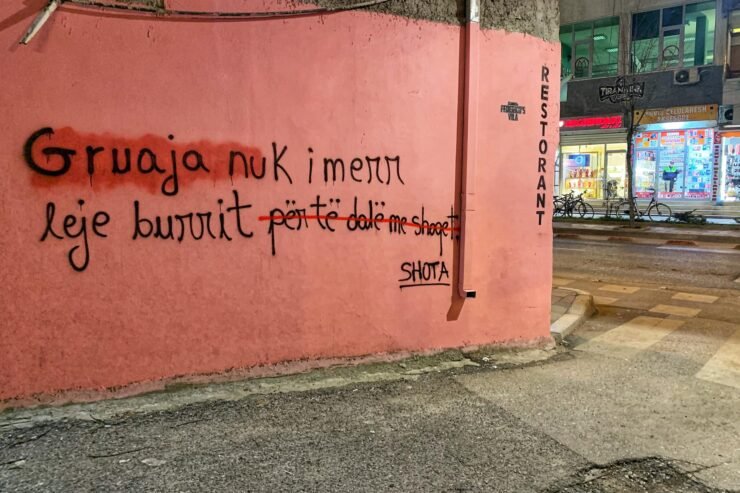 Gruaja nuk i merr
leje burrit për të dalë me shoqet.
SHOTA
RESTORANT
FEDERICO'S
VILA